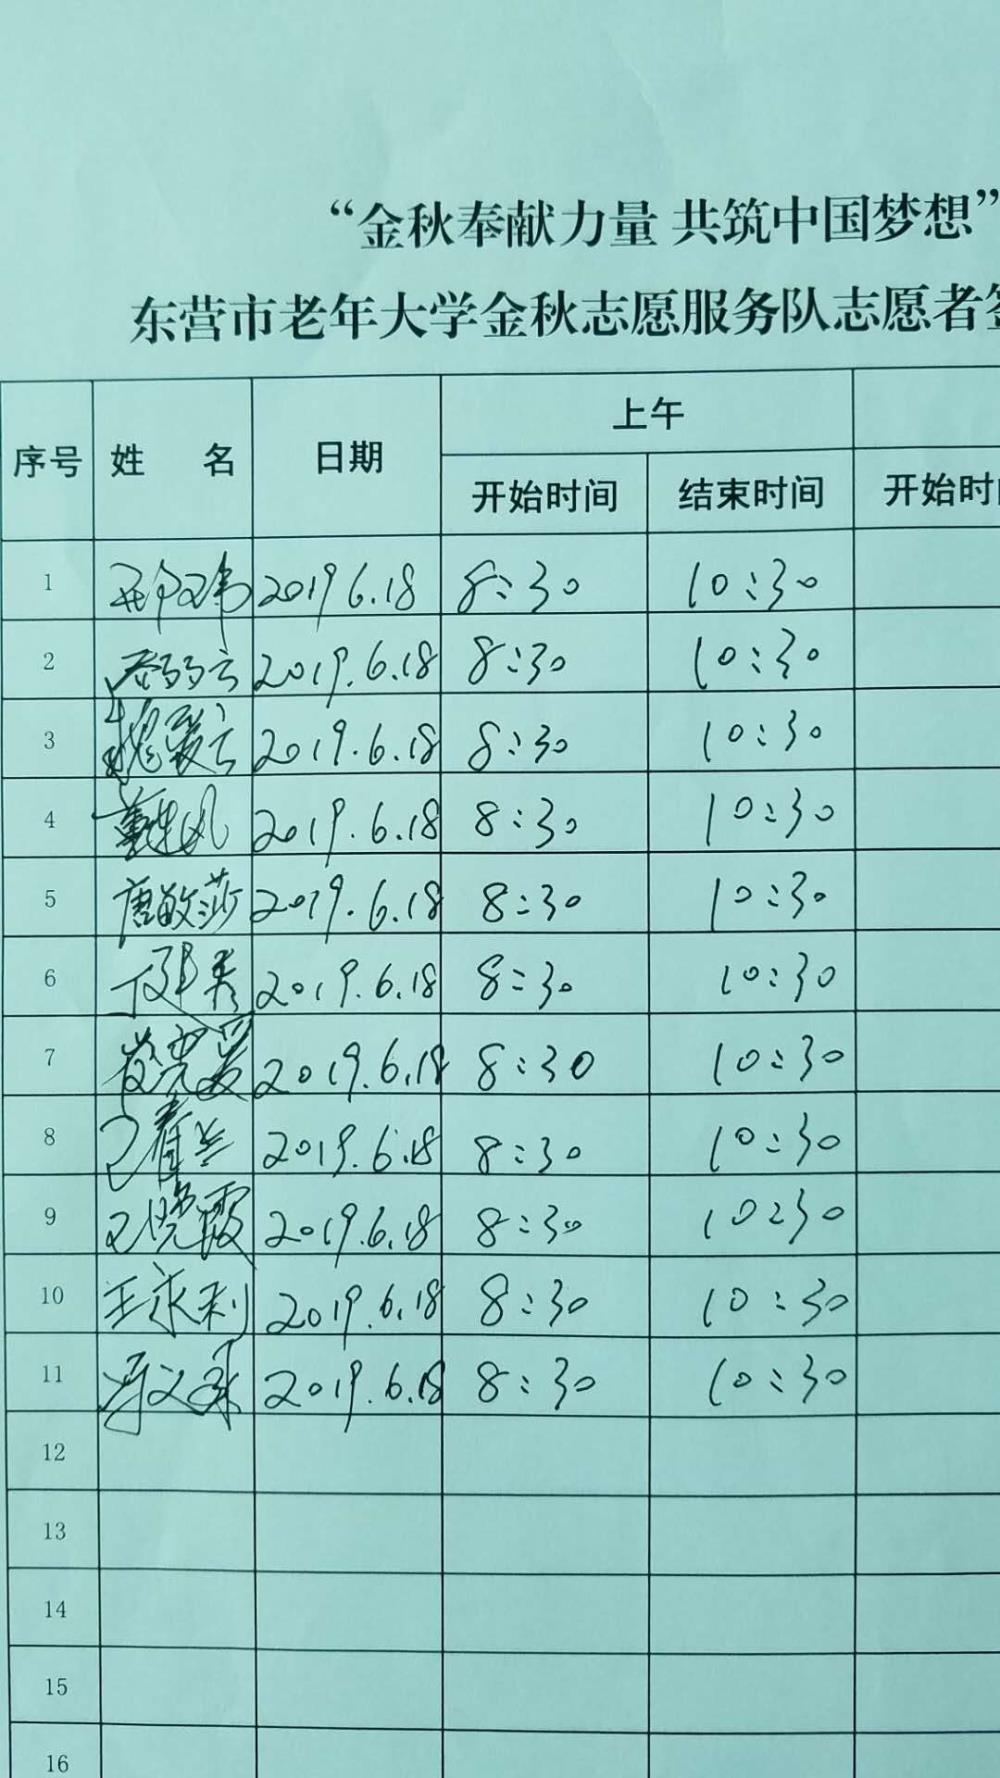 “金秋奉献力量 共筑中国梦想”
东营市老年大学金秋志愿服务队志愿者
序号 姓 名 日期 上午
开始时间 结束时间 开始时
1 2019 6.18 8:30 10:30
2 2019.6.18 8:30 10:30
3 2019.6.18 8:30 10:30
4 2019.6.18 8:30 10:30
5 唐敏莎 2019.6.18 8:30 10:30
6 2019.6.18 8:30 10:30
7 2019.6.18 8:30 10:30
8 2019.6.18 8:30 10:30
9 王晓霞 2019.6.18 8:30 10:30
10 王永利 2019.6.18 8:30 10:30
11 2019.6.18 8:30 10:30
12
13
14
15
16